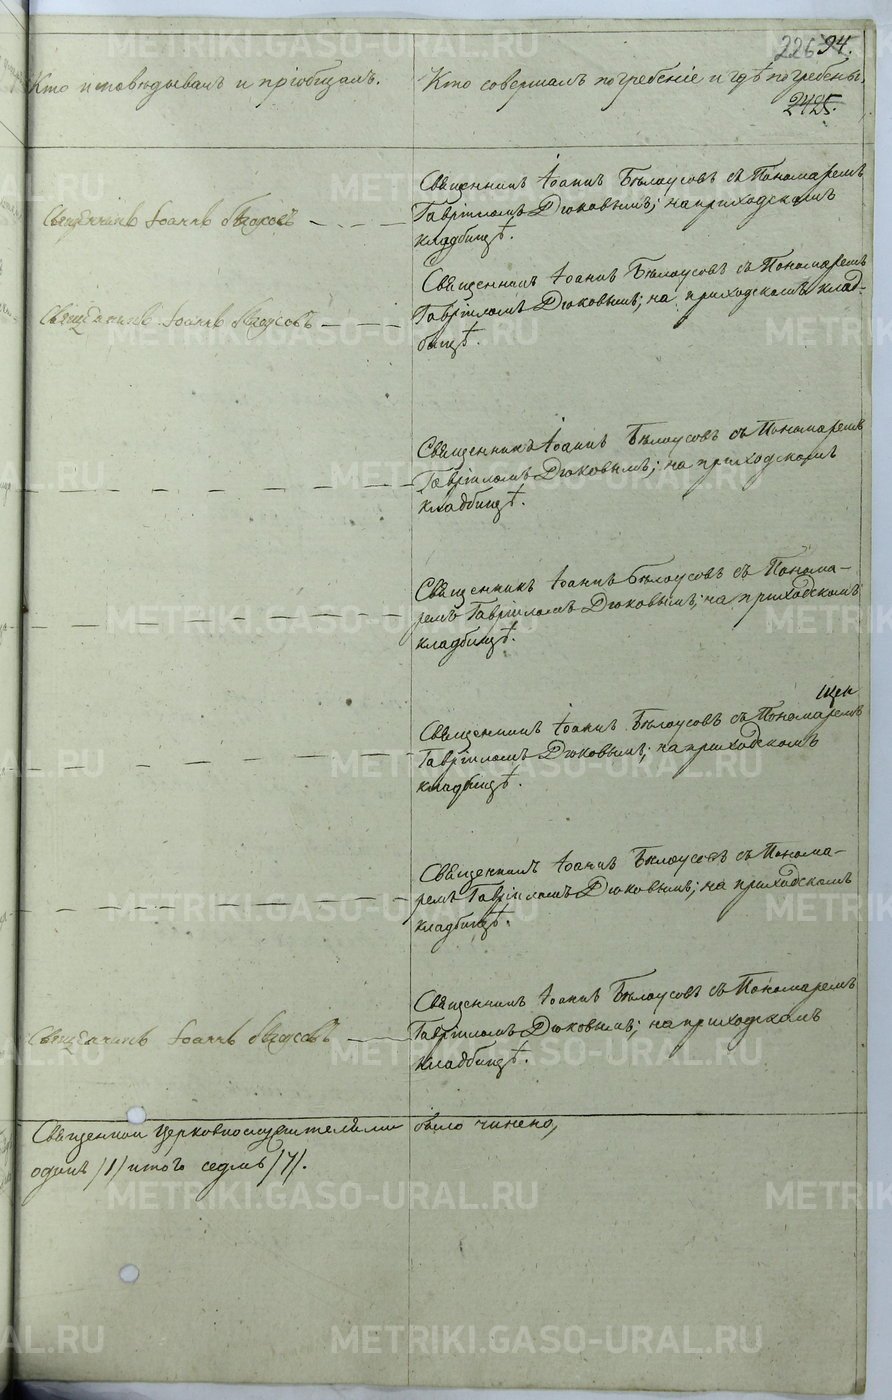 226 94.
Кто исповѣдывалъ и пріобщалъ.
Кто совершалъ погребеніе и гдѣ погребены.
2425.
Священникъ Іоаннъ Бѣлоусовъ
Священникъ Іоаннъ Бѣлоусовъ съ Пономаремъ
Гавріиломъ Дюковымъ; на приходскомъ
кладбищѣ.
Священникъ Іоаннъ Бѣлоусовъ
Священникъ Іоаннъ Бѣлоусовъ съ Пономаремъ
Гавріиломъ Дюковымъ; на приходскомъ клад-
бищѣ.
Священникъ Іоаннъ Бѣлоусовъ съ Пономаремъ
Гавріиломъ Дюковымъ; на приходскомъ
кладбищѣ.
Священникъ Іоаннъ Бѣлоусовъ съ Понома-
ремъ Гавріиломъ Дюковымъ; на приходскомъ
кладбищѣ.
Священникъ Іоаннъ Бѣлоусовъ съ Пономаремъ
Гавріиломъ Дюковымъ; на приходскомъ
кладбищѣ.
Священникъ Іоаннъ Бѣлоусовъ съ Понома-
ремъ Гавріиломъ Дюковымъ; на приходскомъ
кладбищѣ.
Священникъ Іоаннъ Бѣлоусовъ
Священникъ Іоаннъ Бѣлоусовъ съ Пономаремъ
Гавріиломъ Дюковымъ; на приходскомъ
кладбищѣ.
Священно и церковнослужителями было чинено,
одинъ /1/ итого седмь /7/.
METRIKI.GASO-URAL.RU